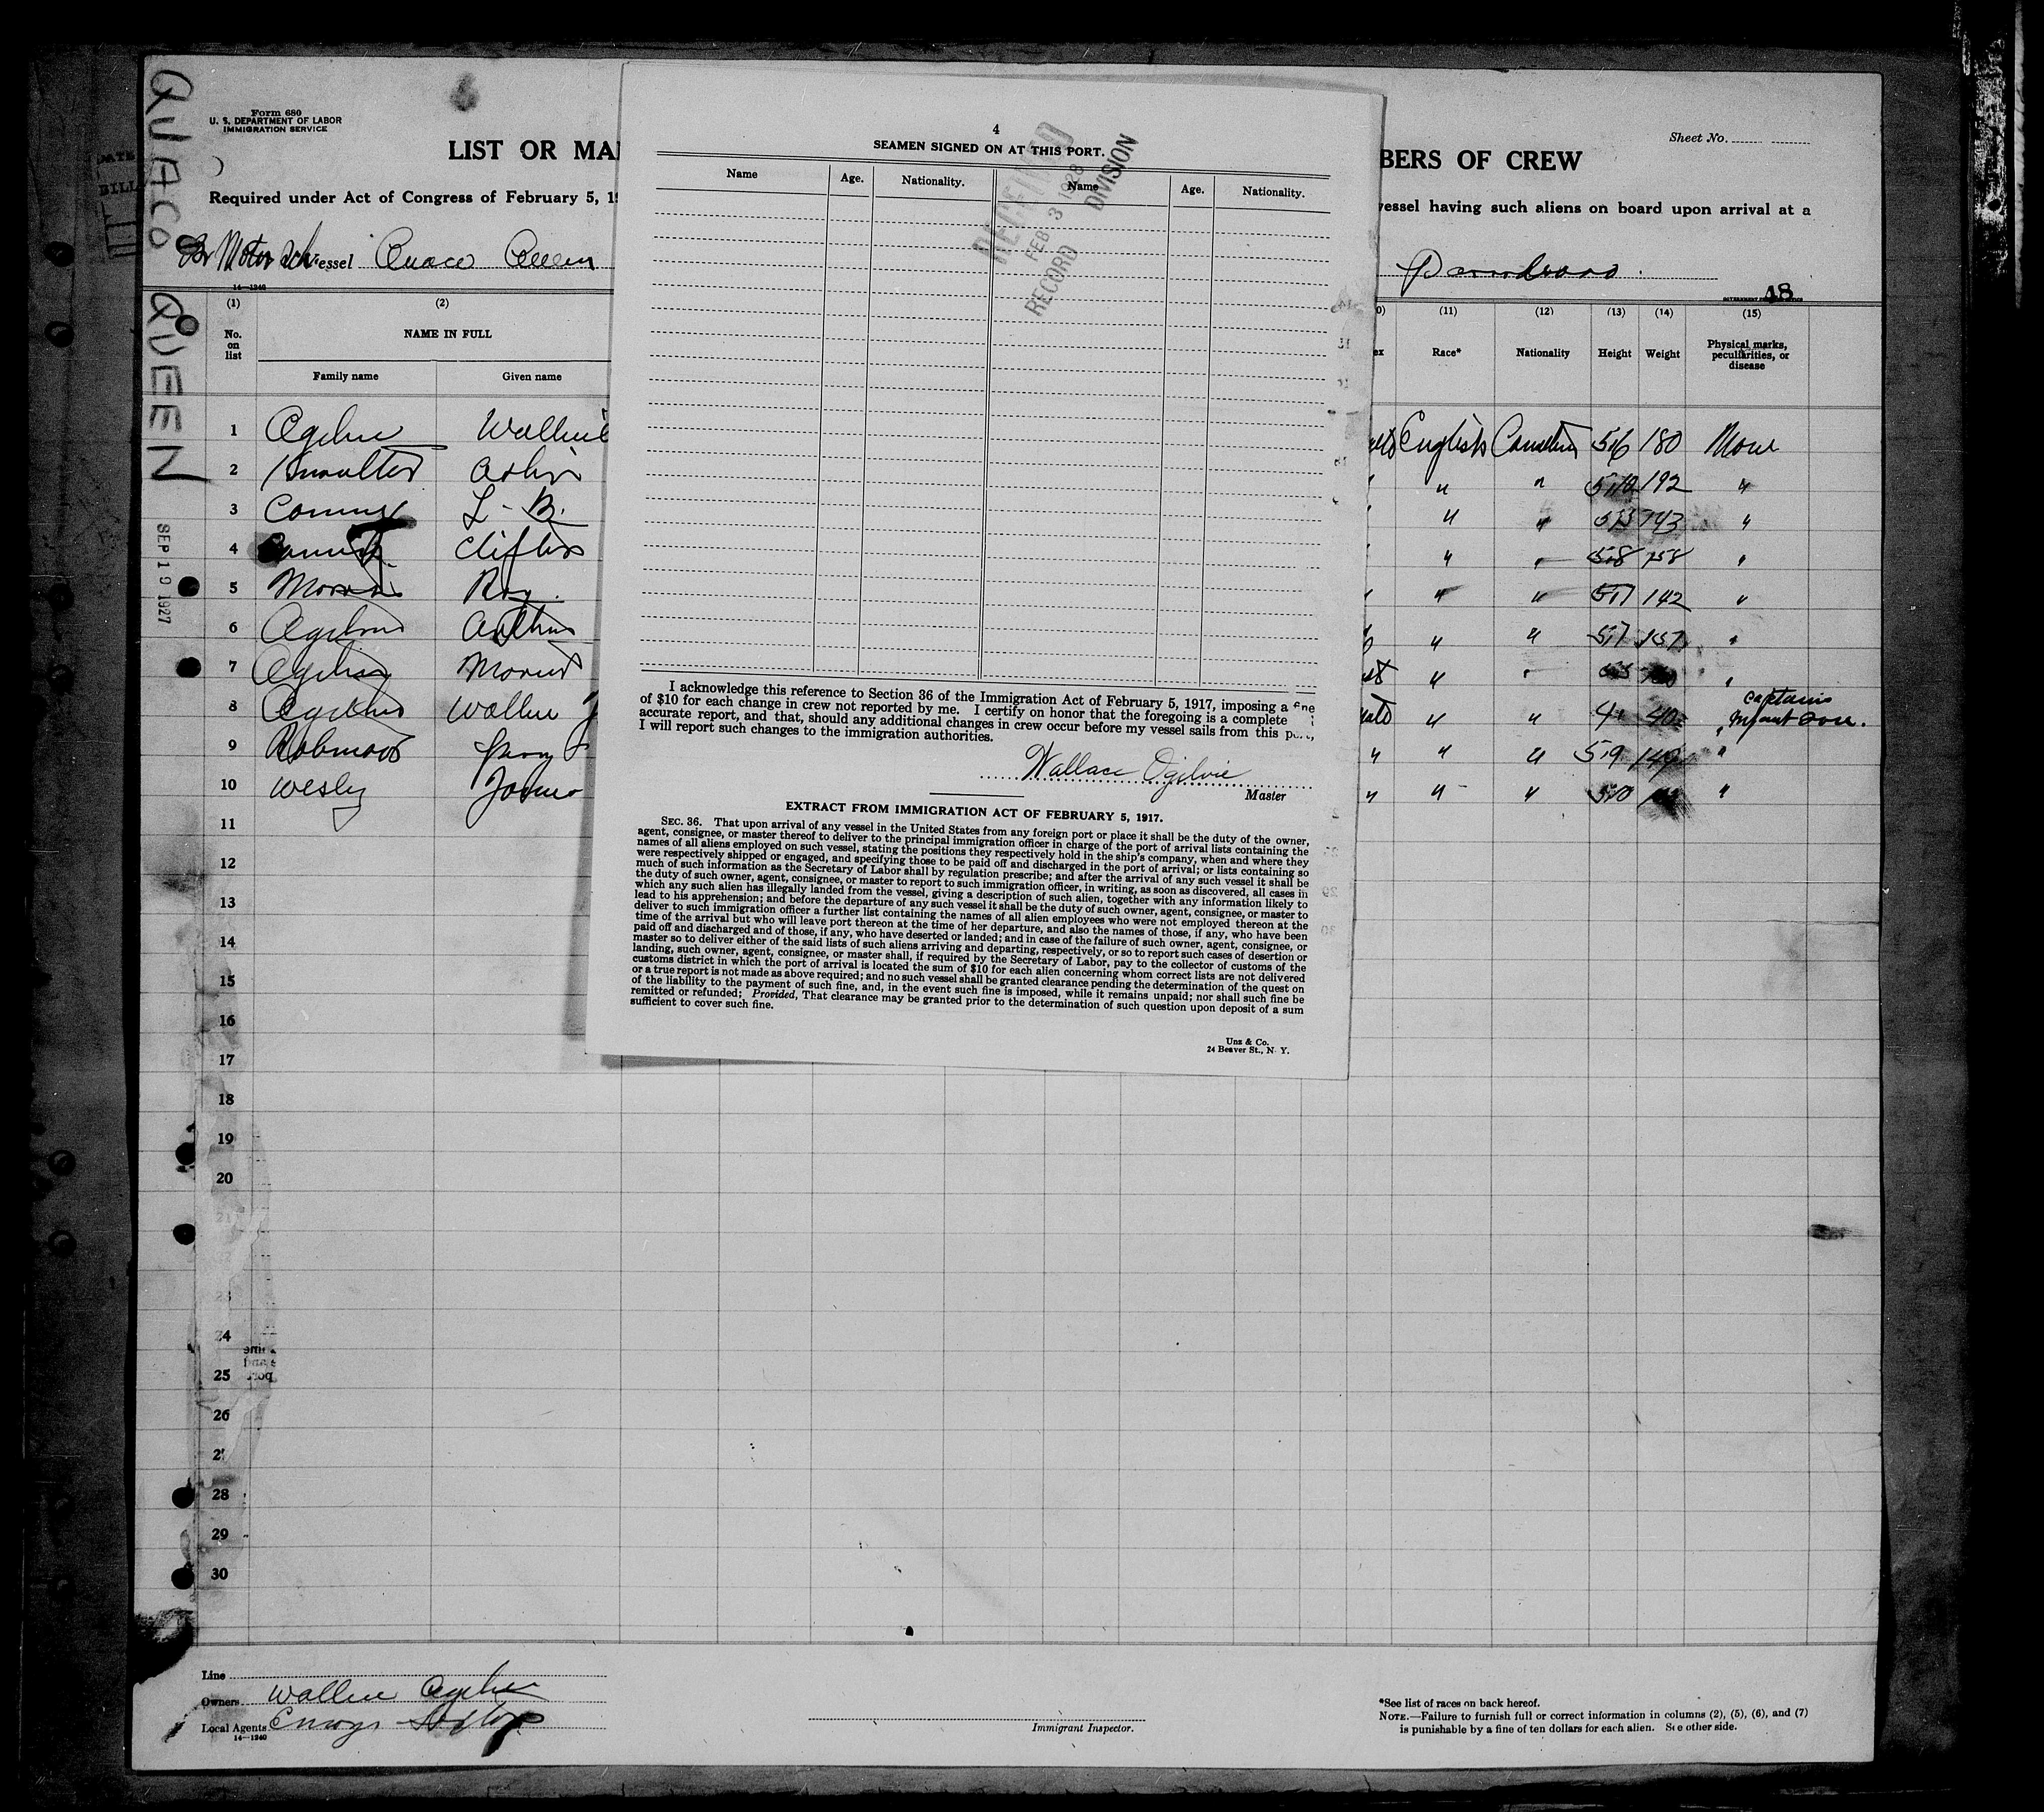 QUACO QUEEN
SEP 19 1927
DATE
BILL
Form 680
U. S. DEPARTMENT OF LABOR
IMMIGRATION SERVICE
Sheet No.
LIST OR MA
BERS OF CREW
Required under Act of Congress of February 5, 19
vessel having such aliens on board upon arrival at a
Br Motor Sch. essel Quaco Queen
14—1240
48
(1) (2) (11) (12) (13) (14) (15)
No. on list
NAME IN FULL
Family name Given name
ex Race* Nationality Height Weight Physical marks, peculiarities, or disease
1 Ogilvie Wallace English Canadian 5,6 180 None
2 192 " "
3 L. B. " " "
4 Clifton " 5,8 158 "
5 Morris Roy " " 5,7 142 "
6 Ogilvie Arthur " " 5,7 157 "
7 Ogilvie "
8 Ogilvie Wallace " " 4, 40 " Captains Infant Son.
9 Robinson " " " 5,9 "
10 Wesley James " " " 5,10 "
11
12
13
14
15
16
17
18
19
20
21
23
24
25
26
28
29
30
4
SEAMEN SIGNED ON AT THIS PORT.
Name Age. Nationality. Name Age. Nationality.
RECEIVED
FEB 3 1928
RECORD DIVISION
I acknowledge this reference to Section 36 of the Immigration Act of February 5, 1917, imposing a fine
of $10 for each change in crew not reported by me. I certify on honor that the foregoing is a complete
accurate report, and that, should any additional changes in crew occur before my vessel sails from this port,
I will report such changes to the immigration authorities.
Wallace Ogilvie
Master
EXTRACT FROM IMMIGRATION ACT OF FEBRUARY 5, 1917.
SEC. 36. That upon arrival of any vessel in the United States from any foreign port or place it shall be the duty of the owner,
agent, consignee, or master thereof to deliver to the principal immigration officer in charge of the port of arrival lists containing the
names of all aliens employed on such vessel, stating the positions they respectively hold in the ship's company, when and where they
were respectively shipped or engaged, and specifying those to be paid off and discharged in the port of arrival; or lists containing so
much of such information as the Secretary of Labor shall by regulation prescribe; and after the arrival of any such vessel it shall be
the duty of such owner, agent, consignee, or master to report to such immigration officer, in writing, as soon as discovered, all cases in
which any such alien has illegally landed from the vessel, giving a description of such alien, together with any information likely to
lead to his apprehension; and before the departure of any such vessel it shall be the duty of such owner, agent, consignee, or master to
deliver to such immigration officer a further list containing the names of all alien employees who were not employed thereon at the
time of the arrival but who will leave port thereon at the time of her departure, and also the names of those, if any, who have been
paid off and discharged and of those, if any, who have deserted or landed; and in case of the failure of such owner, agent, consignee, or
master so to deliver either of the said lists of such aliens arriving and departing, respectively, or so to report such cases of desertion or
landing, such owner, agent, consignee, or master shall, if required by the Secretary of Labor, pay to the collector of customs of the
customs district in which the port of arrival is located the sum of $10 for each alien concerning whom correct lists are not delivered
or a true report is not made as above required; and no such vessel shall be granted clearance pending the determination of the quest on
of the liability to the payment of such fine, and, in the event such fine is imposed, while it remains unpaid; nor shall such fine be
remitted or refunded; Provided, That clearance may be granted prior to the determination of such question upon deposit of a sum
sufficient to cover such fine.
Unz & Co.
24 Beaver St., N. Y.
Line
Owners Wallace Ogilvie
Local Agents
14—1240
Immigrant Inspector.
*See list of races on back hereof.
NOTE.—Failure to furnish full or correct information in columns (2), (5), (6), and (7)
is punishable by a fine of ten dollars for each alien. See other side.